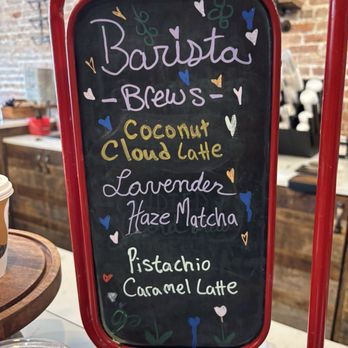 Barista
-Brews-
Coconut
Cloud Latte
Lavender
Haze Matcha
Pistachio
Caramel Latte